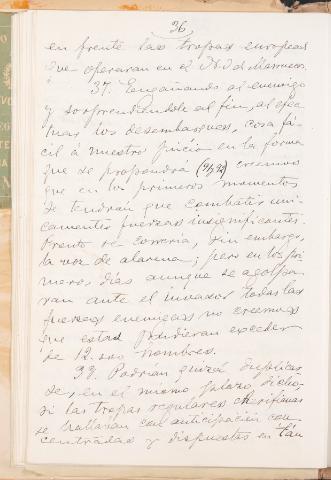 36,
en frente las tropas europeas
que operaran en el N. O. de Marruecos.
37. Engañando al enemigo
y sorprendiendole al fin, al efec-
tuar los desembarques, cosa fá-
cil á nuestro juicio en la forma
que se propondrá creemos
que en los primeros momentos
se tendrán que combatir uni-
camente fuerzas insignificantes.
Pronto se correría, sin embargo,
la voz de alarma; pero en los pri-
meros días aunque se agolpa-
ran ante el invasor todas las
fuerzas enemigas no creemos
que estas pudieran exceder
de 12.000 hombres.
Podrían quizá duplicar-
se, en el mismo plazo, dichos
si las tropas regulares cherifianas
se hallaran con anticipación con-
centradas y dispuestas en